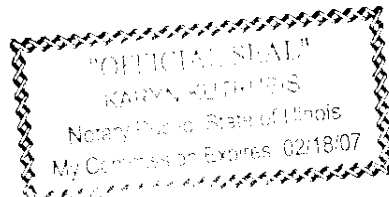 "OFFICIAL SEAL"
KARYN
Notary Public, State of Illinois
My Commission Expires 02/18/07